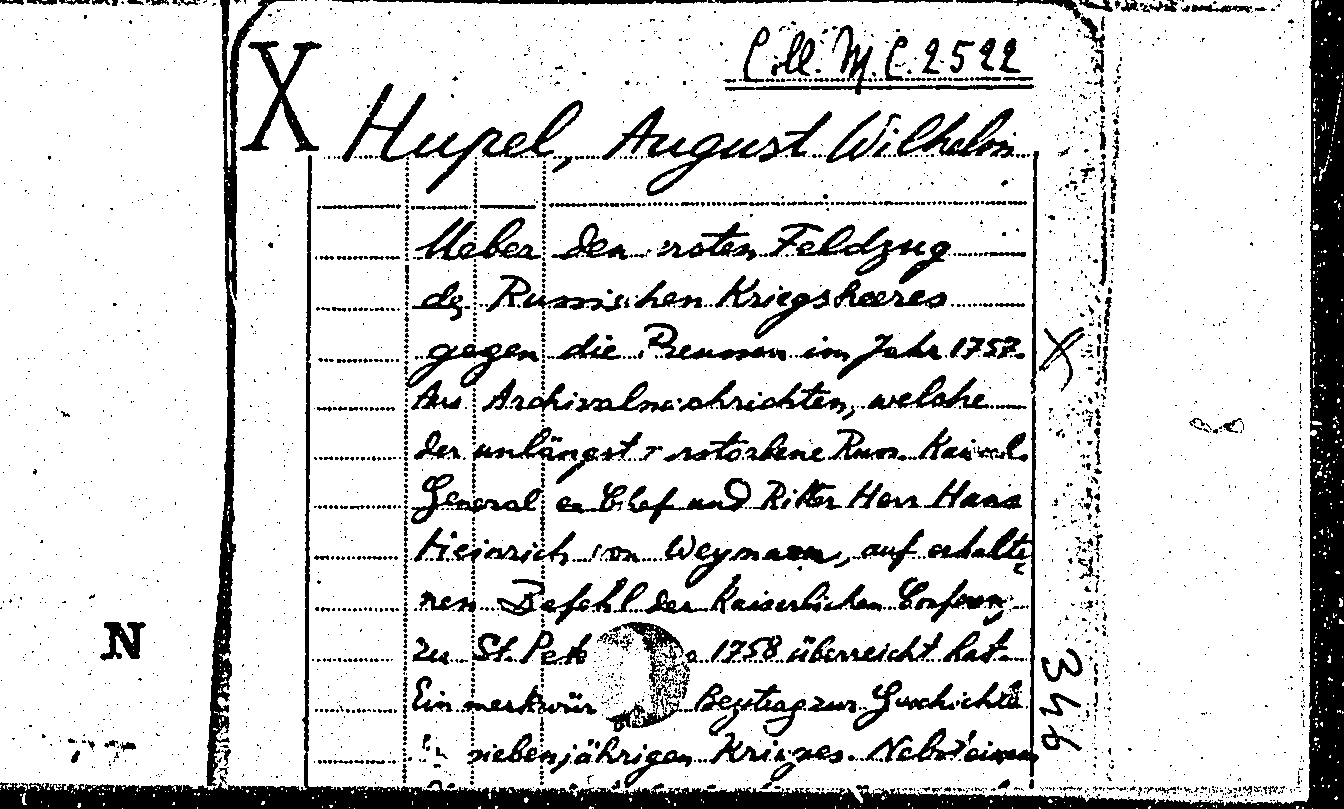 X
Coll. M. C. 2522
Hupel, August Wilhelm
Ueber den ersten Feldzug
des Russischen Kriegsheeres
gegen die Preussen im Jahr 1757.
Aus Archivalnachrichten, welche
der unlängst verstorbene Russ. Kaiserl.
General en Chef und Ritter Herr Hans
Heinrich von Weymarn, auf erhalte
nen Befehl der Kaiserlichen Conferenz
zu St. Pete 1758 überreicht hat.
Ein merkwür Beytrag zur Geschichte
siebenjährigen Krieges. Nebst einem
N
346